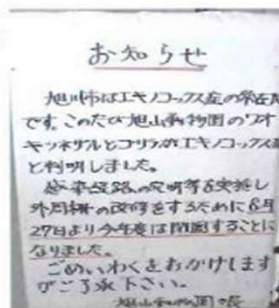 お知らせ
旭川市はエキノコックス症の常在
です。このたび旭山動物園のワオ
キツネザルとゴリラがエキノコックス症
と判明しました。
感染経路の究明等を実施し
外周柵の改修をするために8月
27日より今年度は閉園することに
なりました。
ごめいわくをおかけします
がご了承下さい。
旭山動物園長